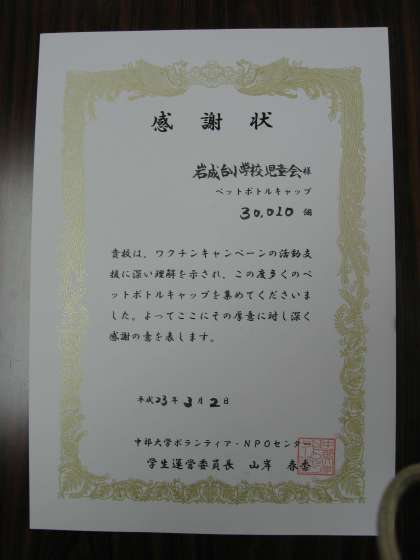 感謝状
岩成台小学校児童会様
ペットボトルキャップ
30,010 個
貴校は、ワクチンキャンペーンの活動支
援に深い理解を示され、この度多くのペ
ットボトルキャップを集めてくださいま
した。よってここにその厚意に対し深く
感謝の意を表します。
平成23年3月2日
中部大学ボランティア・NPOセンター
学生運営委員長 山岸 春香